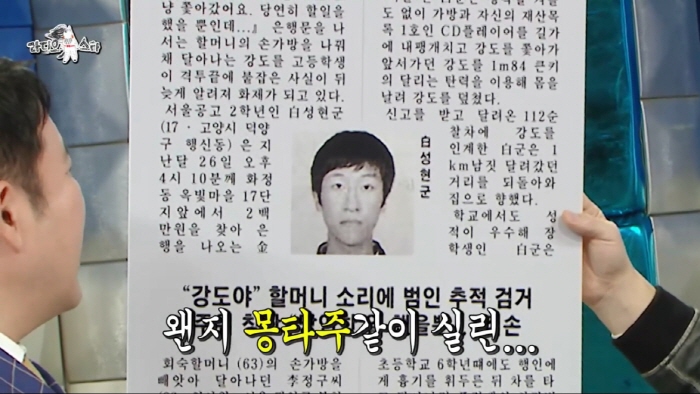 냥 쫓아갔어요. 당연히 할일을
했을 뿐인데…』 은행문을 나
서는 할머니의 손가방을 나꿔
채 달아나는 강도를 고등학생
이 격투끝에 붙잡은 사실이 뒤
늦게 알려져 화제가 되고 있다.
서울공고 2학년인 白성현군
(17·고양시 덕양
구 행신동)은 지
난달 26일 오후
4시 10분께 화정
동 옥빛마을 17단
지앞에서 2백
만원을 찾아 은
행을 나오는 金
白성현군
도 없이 가방과 자신의 재산목
록 1호인 CD플레이어를 길가
에 내팽개치고 강도를 쫓아가
앞서가던 강도를 1m84 큰키
의 달리는 탄력을 이용해 몸을
날려 강도를 덮쳤다.
신고를 받고 달려온 112순
찰차에 강도를
인계한 白군은 1
km남짓 달려갔던
거리를 되돌아와
집으로 향했다.
학교에서도 성
적이 우수해 장
학생인 白군은
"강도야" 할머니 소리에 범인 추적 검거
왠지 몽타주같이 실린...
회숙할머니 (63)의 손가방을
빼앗아 달아나던 李정구씨
초등학교 6학년때에도 행인에
게 흉기를 휘두른 뒤 차를 타